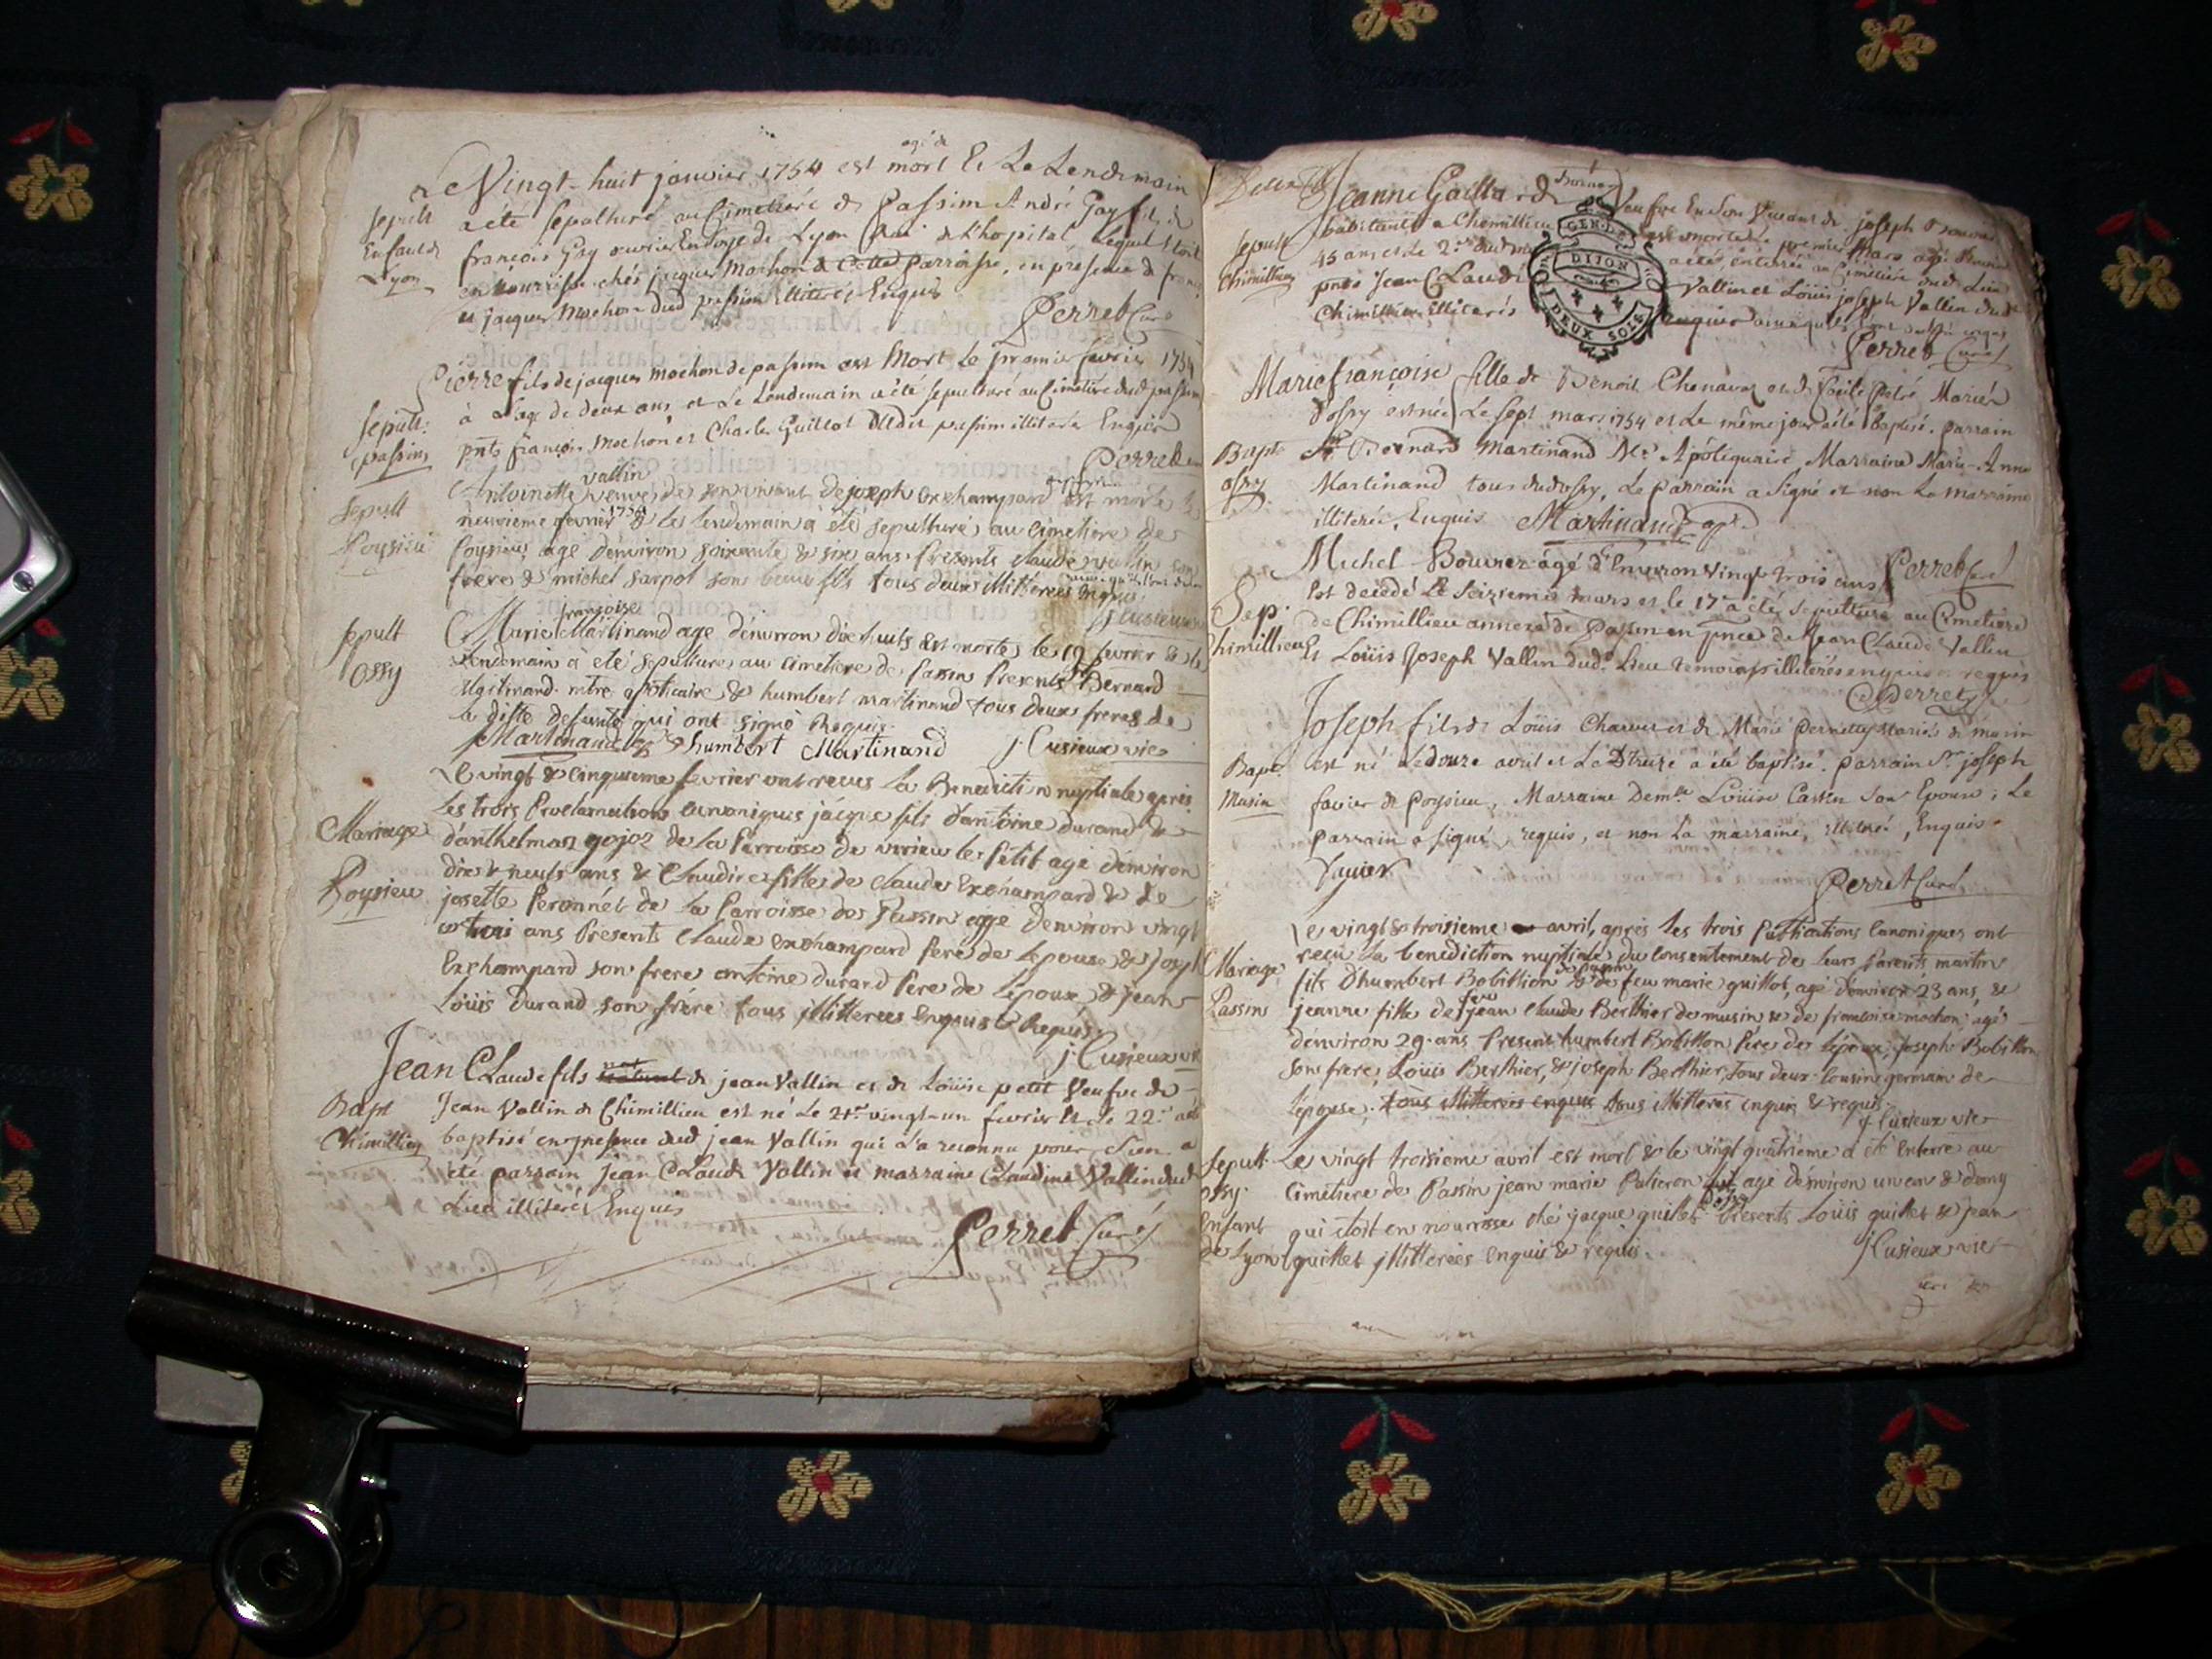 agé de
Le Vingt-huit janvier 1754 est mort Et Le Lendemain
sepult
a été sepulturé au Cimetiére de Passim André Gay fils de
Enfant de
françois Gay ouvrier En soye de Lyon de L'hopital Lequel Etoit
Lyon
en nourrisse chés jacques Mochon de Cette parroisse, en presence de
et jacques Mochon dud passim illiterés Enquis
Perret Curé
Pierre fils de jacques mochon de passim est Mort Le premier fevrier 1754
à L'age de deux ans et Le Lendemain a été sepulturé au Cimetiére dud passim
sepult:
passim
pnts françois Mochon et Charles Guillot dudit passim illiterés Enquis
Perret
vallin
Antoinette veuve de son vivant de joseph Exchampard est morte le
sepult
neuvieme fevrier 1754 & le lendemain à été sepulturé au cimetiere de
Poysieu
Poysieu, agé d'environ soixante & six ans. Presents claude vallin son
frere & michel sarpol son beau fils tous deux illitterées enquis
j Cusieux
françoise
sepult
Marie Martinand age d'environ dix huits est morte le 19 fevrier & le
ossy
lendemain à eté sepulturé au cimetiere de Passin Presents Sr Bernard
Martinand mtre apoticaire & humbert martinand tous deux freres de
la ditte defunte qui ont signé Requis.
Martinand & humbert Martinand j. Cusieux vic
Le vingt & cinquieme fevrier ont recus La Benediction nuptiale après
les trois Proclamations canoniques jàcque fils d'antoine durand de
Mariage
d'anthelmaz gojoz de la Parroisse de virieu le Petit agé d'environ
dix & neufs ans & Claudine fille de claude Exchampard & de
Poysieu
josette Peronnet de la Parroisse de Passin age denviron vingt
trois ans Presents claude exchampard Pere de lepouse & joseph
Exchampard son frere antoine durand Pere de L'époux & jean
Loüis durand son frére tous illitterées enquis & Requis.
j: Cusieux vic
Jean Claude fils nat naturel de jean Vallin et de Loüise petit Veufve de
Bapt
Jean Vallin de Chimillieu est né Le 21e vingt-un fevrier Et Le 22e a été
Chimillieu
baptisé en presence dud jean Vallin qui L'a reconnu pour Sien a
été parrain Jean Claude Vallin et marraine Claudine Vallin dud
Lieu illiterés Enquis
Perret Curé
Jeanne Gaillard Veufve En son Vivant de joseph
habitante a Chimillieu est morte Le premier Mars agé
sepult
45 ans et Le 2e dud a été enterrée au Cimetiére dud Lieu
Chimillieu
pnts Jean Claude Vallin et Loüis joseph Vallin dud
Chimillieu illiterés
GEN. DE DIJON
DEUX SOLS
Perret Curé
Marie françoise fille de Benoit Chenavaz et de Mariés
d'ossy est née Le sept mars 1754 et Le même jour a été Baptisé. parrain
Bapt
Sr Bernard Martinand Me Apotiquaire Marraine Marie-Anne
ossy
Martinand tous dud ossy, Le parrain a signé et non La marraine
illiterée, Enquis Martinand apre
Michel Bouvier âgé d'Environ Vingt trois ans Perret Curé
Est decedé Le Seizieme mars et le 17e a été sepulturé au Cimetiere
Sep:
de Chimillieu annexe de Passin en pnce de Jean Claude Vallin
Chimillieu
Et Loüis Joseph Vallin dud. Lieu temoins illiterés enquis et requis
Perret
Joseph fils de Loüis Charvet et de Marie Pernetty Mariés de musin
Bapt
est né Le douze avril et Le Treize a été baptisé. parrain Sr joseph
Musin
favier de Poysieu, Marraine Demlle Loüise Cassin Son Epouse; Le
parrain a signé, requis, et non La marraine, illiteré, Enquis
favier
Perret Curé
Le vingt & troisieme avril, aprés Les trois Publications canoniques ont
reçu La benediction nuptiale du consentement de leurs Parents martin
Mariage
de Passin
fils D'humbert Bobillion & de feu marie guillot, agé d'environ 23 ans, &
Passins
feu
jeanne fille de jean claude Berthier de musin & de francoise mochon, agés
d'environ 29. ans Present humbert Bobillion Pére de lépoux, Joseph Bobillion
son frere, Loüis Berthier, & joseph Berthier, Tous deux cousins germain de
l'épouse. tous illitterées enquis tous illitteres enquis & requis.
j Cusieux vic
sepult
Le vingt troisieme avril est mort & le vingt quatrieme a été enterré au
ossy.
Cimetiere de Passin jean marie Policron agé d'environ un an & demy
enfant
qui étoit en nourrisse ché jacque guillet Presents Loüis guillet & jean
de Lyon
guillet illitterées enquis & requis.
j Cusieux vic